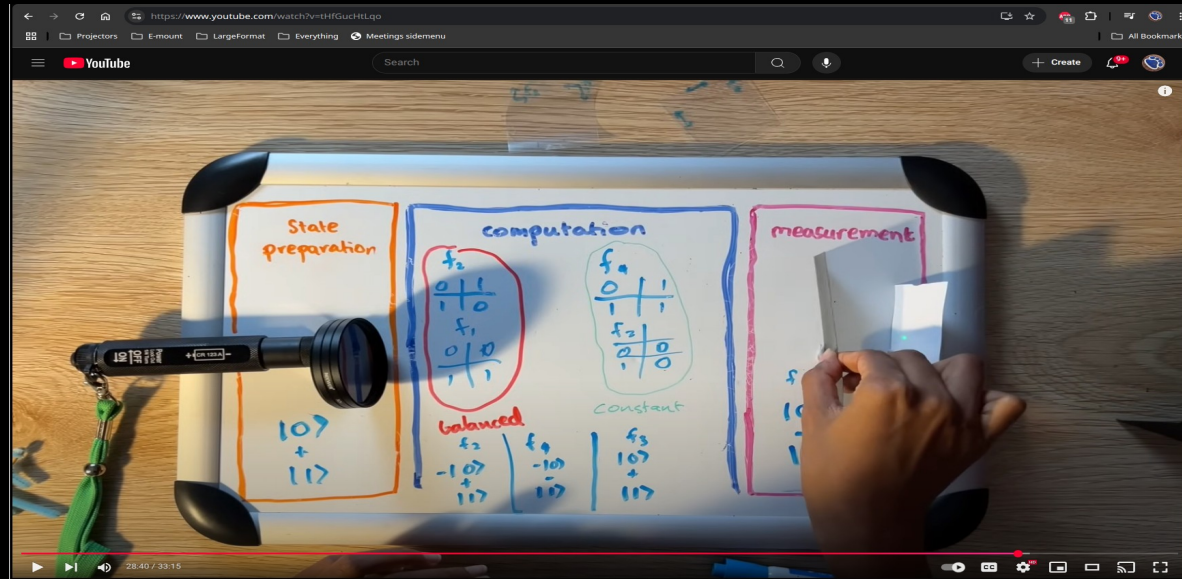 https://www.youtube.com/watch?v=tHfGucHtLqo
Projectors E-mount LargeFormat Everything Meetings sidemenu All Bookmark
YouTube Search Create 9+
State
preparation
|0>
+
|1>
computation
f₂
0 | 1
1 | 0
f₁
0 | 0
1 | 1
balanced
f₄
0 | 1
1 | 1
f₂
0 | 0
1 | 0
constant
f₂
-|0>
+
|1>
f₄
-|0>
-
|1>
f₃
|0>
+
|1>
measurement
f
Power
OFF
ON
+ CR 123A -
28:40 / 33:15
CC
HD